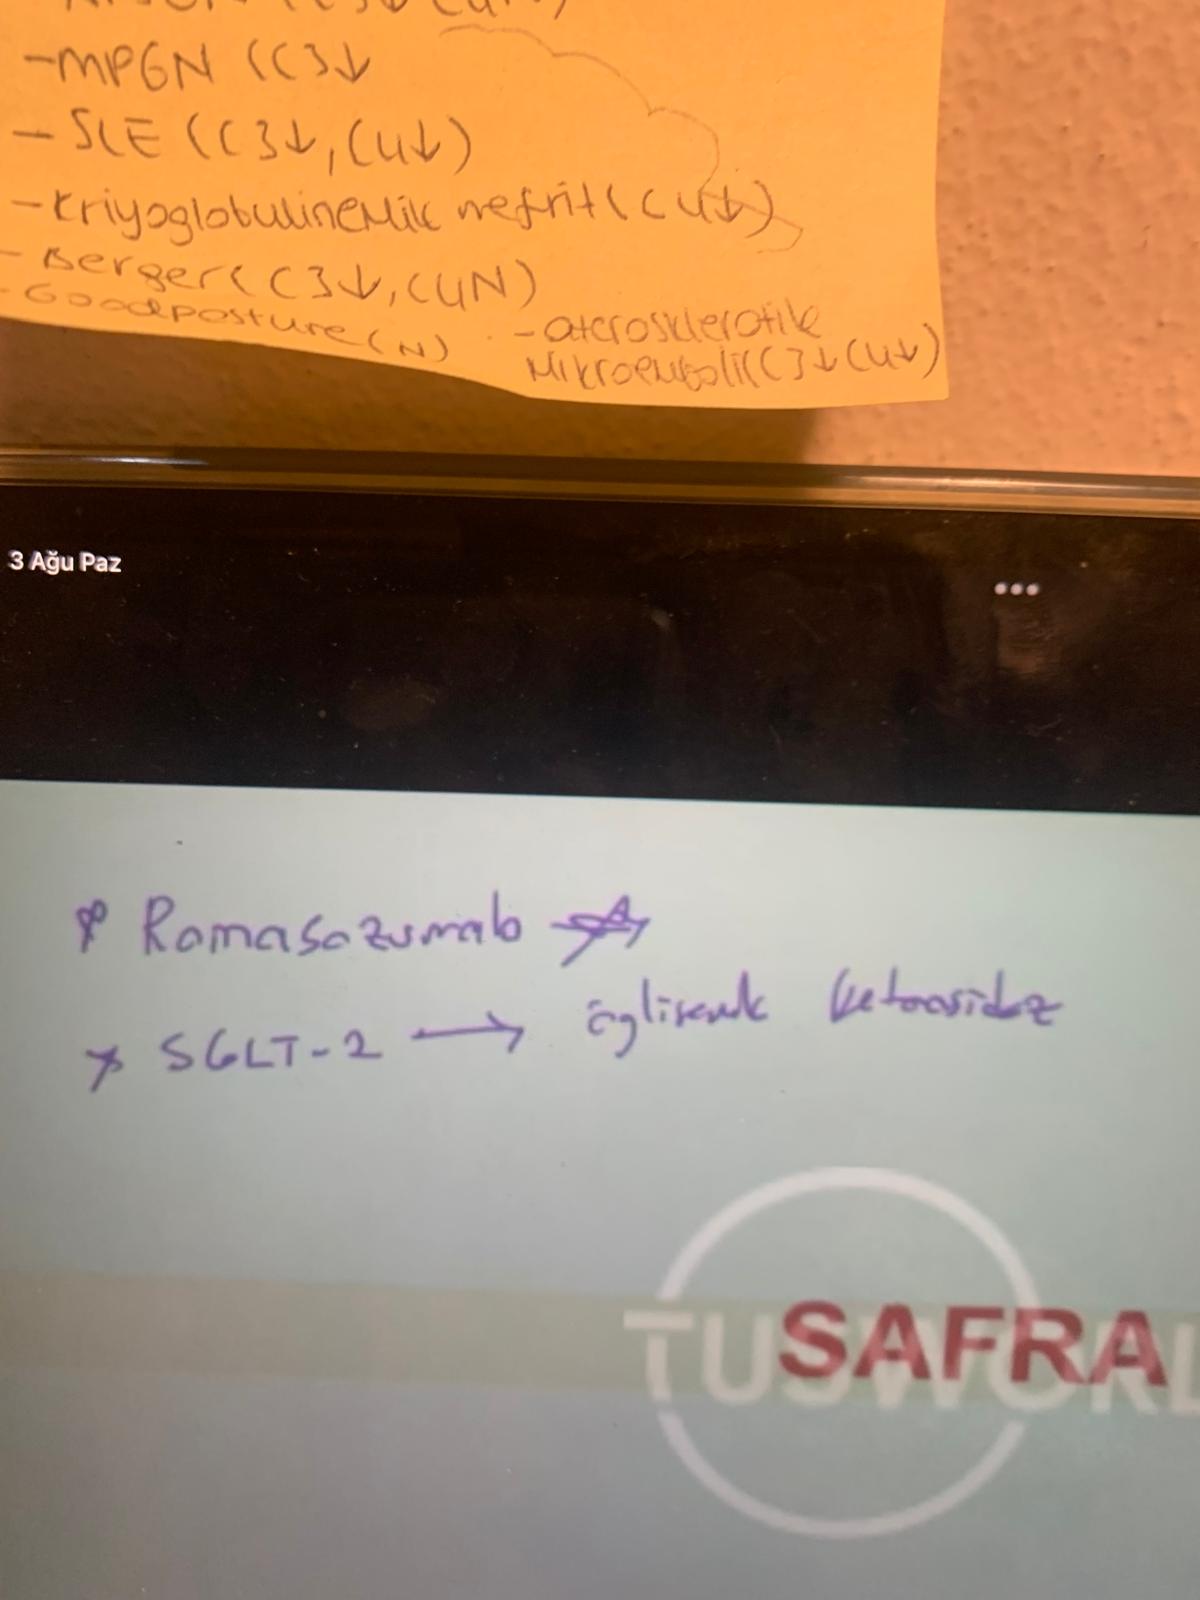 -MPGN (C3↓
- SLE (C3↓, C4↓)
- Kriyoglobulinemik nefrit (C4↓)
- Berger (C3↓, C4N)
- Goodposture (N)
- aterosklerotik
mikroemboli (C3↓ C4↓)
3 Ağu Paz
Romasozumab
* SGLT-2 → öglisemik ketoasidoz
SAFRA
TUSWORL